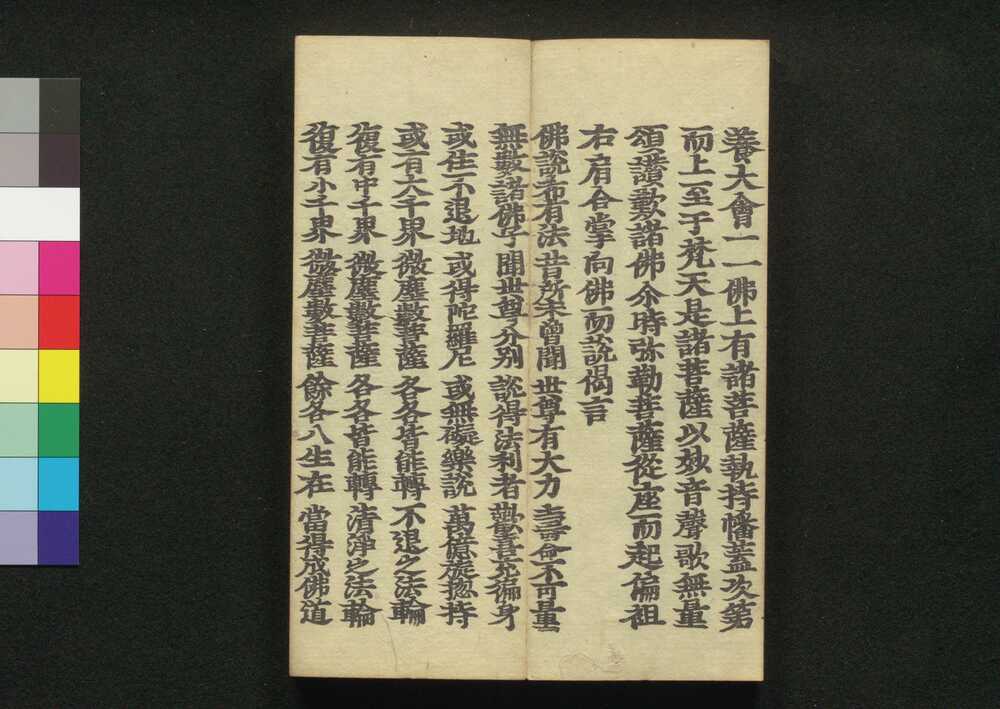 養大會一一佛上有諸菩薩執持幡蓋次第
而上至于梵天是諸菩薩以妙音聲歌無量
頌讚歎諸佛尒時弥勒菩薩從座而起偏袒
右肩合掌向佛而說偈言
佛說希有法 昔所未曾聞 世尊有大力 壽命不可量
無數諸佛子 聞世尊分別 說得法利者 歡喜充徧身
或住不退地 或得陀羅尼 或無礙樂說 萬億旋揔持
或有大千界 微塵數菩薩 各各皆能轉 不退之法輪
復有中千界 微塵數菩薩 各各皆能轉 清淨之法輪
復有小千界 微塵數菩薩 餘各八生在 當得成佛道